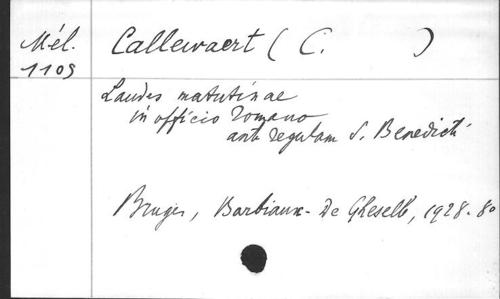 Mél.
1109
Callewaert ( C. )
Laudes matutinae
in officio romano
ante regulam S. Benedicti
Bruges, Barbiaux-De Gheselle, 1928. 8o